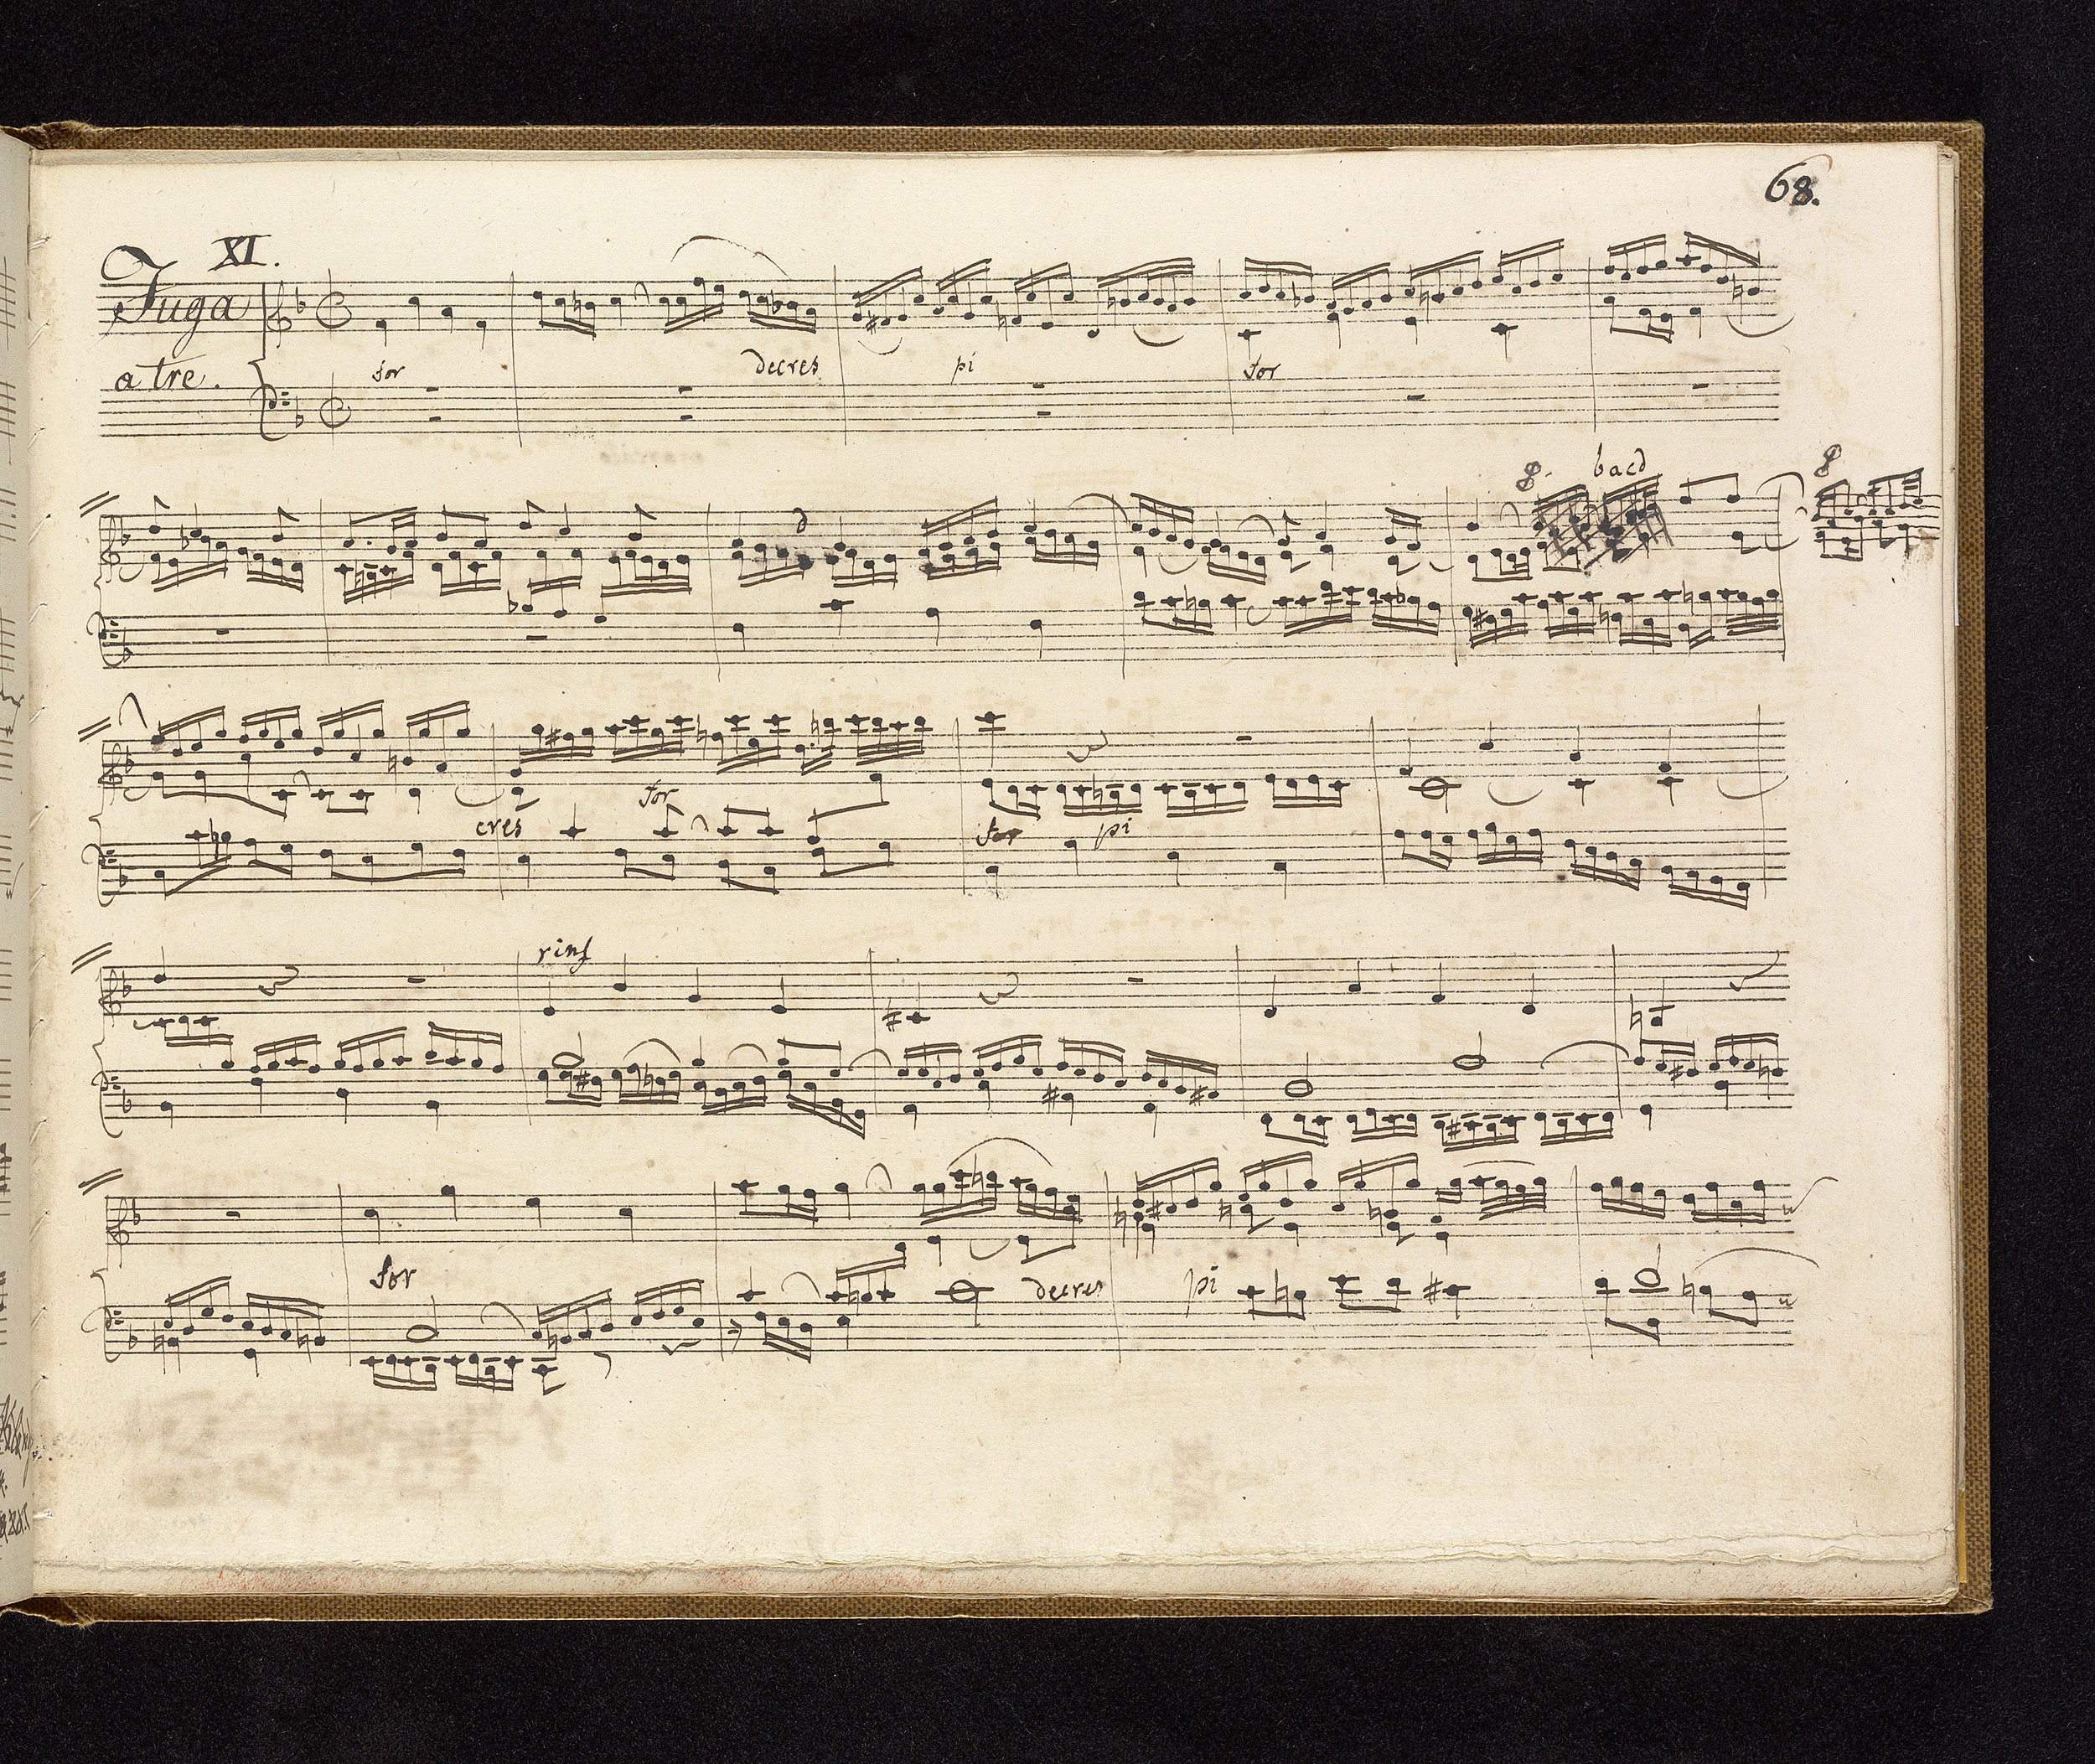 68.
XI.
Fuga
a tre.
for decres pi for
bacd
d
for
cres for pi
rinf
for decres pi